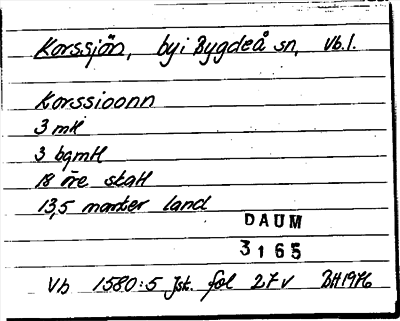 Korssjön, by i Bygdeå sn, Vb. l.
Korssioonn
3 mtl
3 bgmtl
18 öre skatt
13,5 marker land
DAUM
3165
Vb 1580:5 Jsk. fol 27v BH 1976